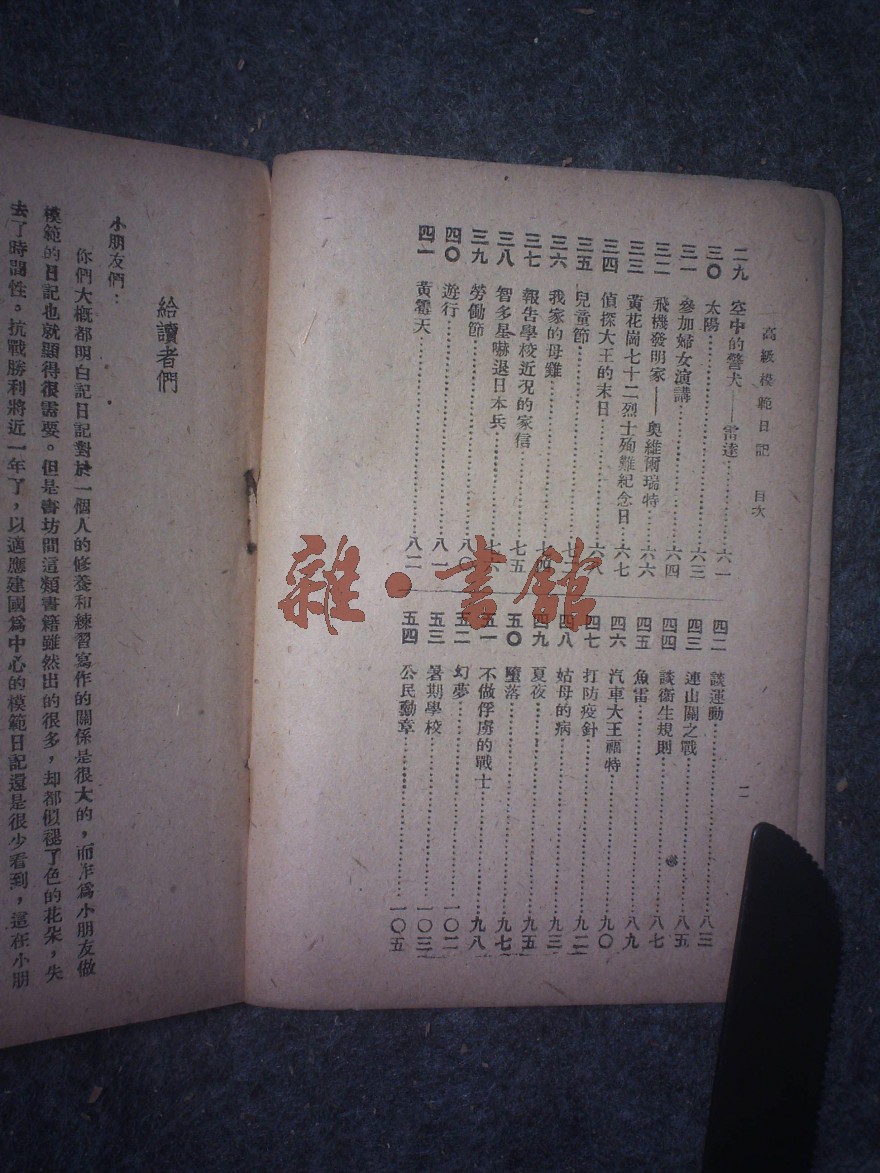 高級模範日記 目次 二
二九 空中的警犬——雷達 六一
三〇 太陽 六三
三一 參加婦女演講 六四
三二 飛機發明家——奧維爾瑞特 六六
三三 黃花崗七十二烈士殉難紀念日 六七
三四 偵探大王的末日 六八
三五 兒童節
三六 我家的母雞
三七 報告學校近況的家信 七五
三八 智多星嚇退日本兵
三九 勞働節 八〇
四〇 遊行 八一
四一 黃霉天 八二
四二 談運動 八三
四三 連山關之戰 八五
四四 談衞生規則 八七
四五 魚雷 八九
四六 汽車大王福特 九〇
四七 打防疫針 九二
四八 姑母的病 九三
四九 夏夜 九五
五〇 墮落 九七
五一 不做俘虜的戰士 九八
五二 幻夢 一〇二
五三 暑期學校 一〇三
五四 公民勳章 一〇五
雜·書館
給讀者們
小朋友們：
你們大概都明白記日記對於一個人的修養和練習寫作的關係是很大的，而作爲小朋友做
模範的日記也就顯得很需要。但是書坊間這類書籍雖然出的很多，却都似褪了色的花朵，失
去了時間性。抗戰勝利將近一年了，以適應建國爲中心的模範日記還是很少看到，這在小朋